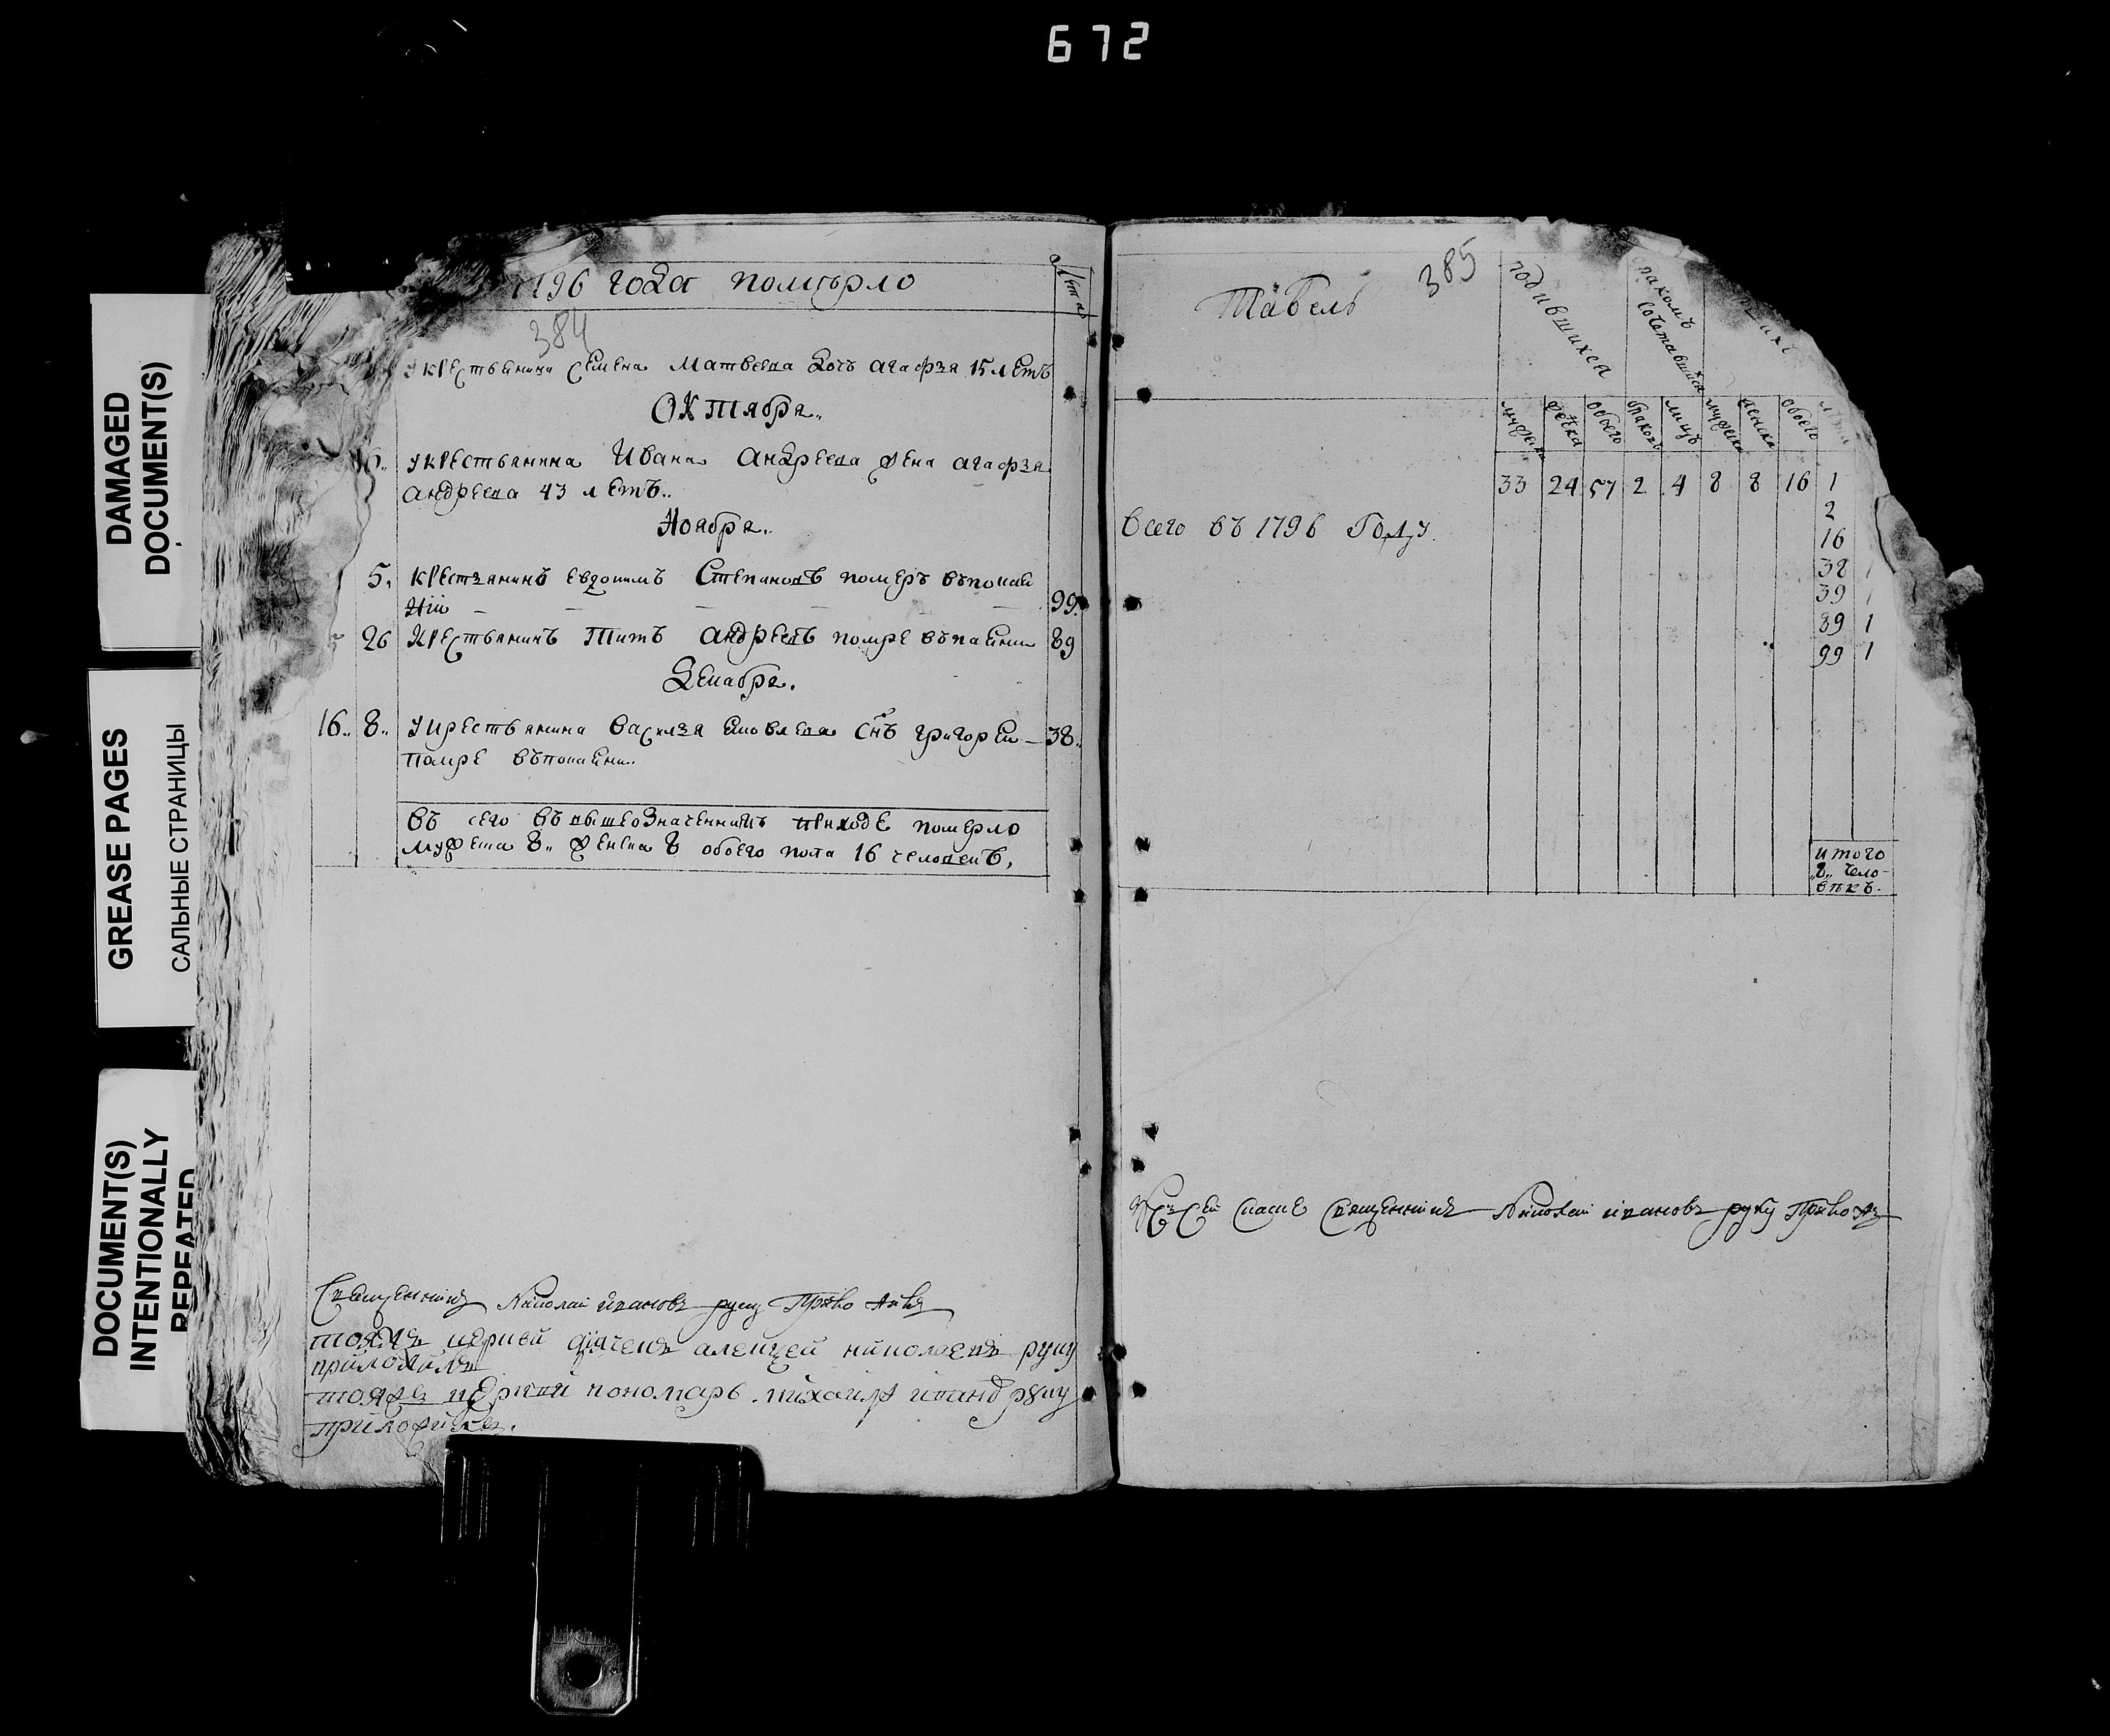 672
DAMAGED
DOCUMENT(S)
GREASE PAGES
САЛЬНЫЕ СТРАНИЦЫ
DOCUMENT(S)
INTENTIONALLY
REPEATED
1796 года помєрло
лѣта
384
у крестьянина Семена Матвеева дочь агафья 15 летъ
Октября..
у крестьянина Ивана Андреева жена агафья
андреева 43 летъ..
Ноября.
5. крестьянинъ евдокимъ Степановъ померъ въ покая
нїи 99.
26 крестьянинъ Титъ андреевъ помре 89
Декабря.
16.. 8.. у крестьянина Василья яковлева снъ григорей 38..
помре
въ сего въ вышеозначенномъ приходе померло
мужеска 8.. женска 8 обоего пола 16 человекъ,
Священникъ Николай ивановъ руку
тояжъ церкви дьячекъ алексей николаевъ руку
приложилъ
тояжъ церкви пономарь михаилъ иванов руку
приложилъ.
385
Табель
родившихся
бракомъ
сочетавшихся
мужеска женска обоего браковъ лицъ мужеска женска обоего лета
33 24 57 2 4 8 8 16 1
Всего въ 1796 Году.
2
16
38 1
39 1
89 1
99 1
итого
„8„ чело-
вѣкъ.
священникъ Николай ивановъ руку